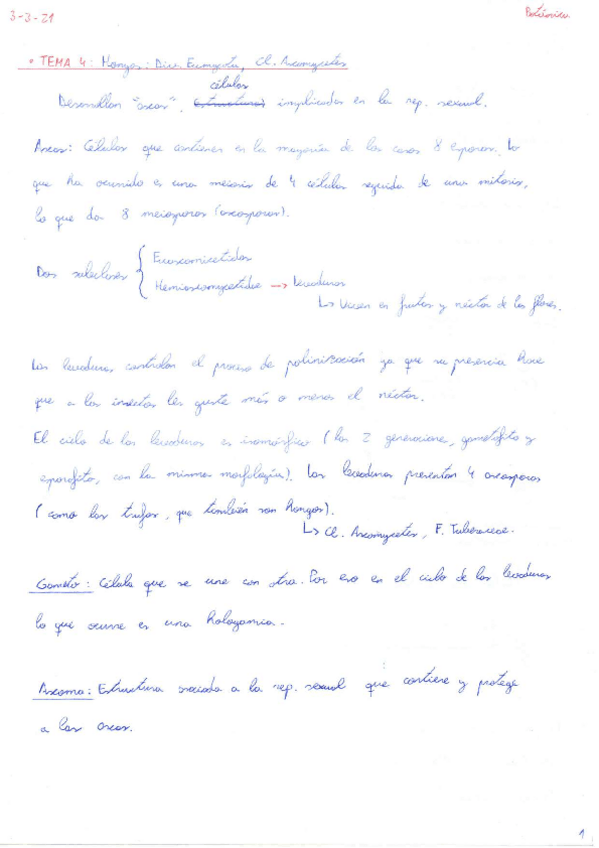 3-3-21
Botánica
• TEMA 4: Hongos: Div. Eumycota, Cl. Ascomycetes
células
Desarrollan "ascas". (Estructuras) implicadas en la rep. sexual.
Ascas: Células que contienen en la mayoría de los casos 8 esporas. Lo
que ha ocurrido es una meiosis de 4 células seguida de una mitosis,
lo que da 8 meiosporas (ascosporas).
Dos subclases { Euascomicetidas
Hemiascomycetidae → Levaduras
↳ Viven en frutos y néctar de las flores.
Las levaduras controlan el proceso de polinización ya que su presencia hace
que a los insectos les guste más o menos el néctar.
El ciclo de las levaduras es isomórfico (las 2 generaciones, gametofito y
esporofito, con la misma morfología). Las levaduras presentan 4 ascosporas
(como las trufas, que también son hongos).
↳ Cl. Ascomycetes, F. Tuberaceae.
Gameto: Célula que se une con otra. Por eso en el ciclo de las levaduras
lo que ocurre es una hologamia.
Ascoma: Estructura asociada a la rep. sexual que contiene y protege
a las ascas.
1